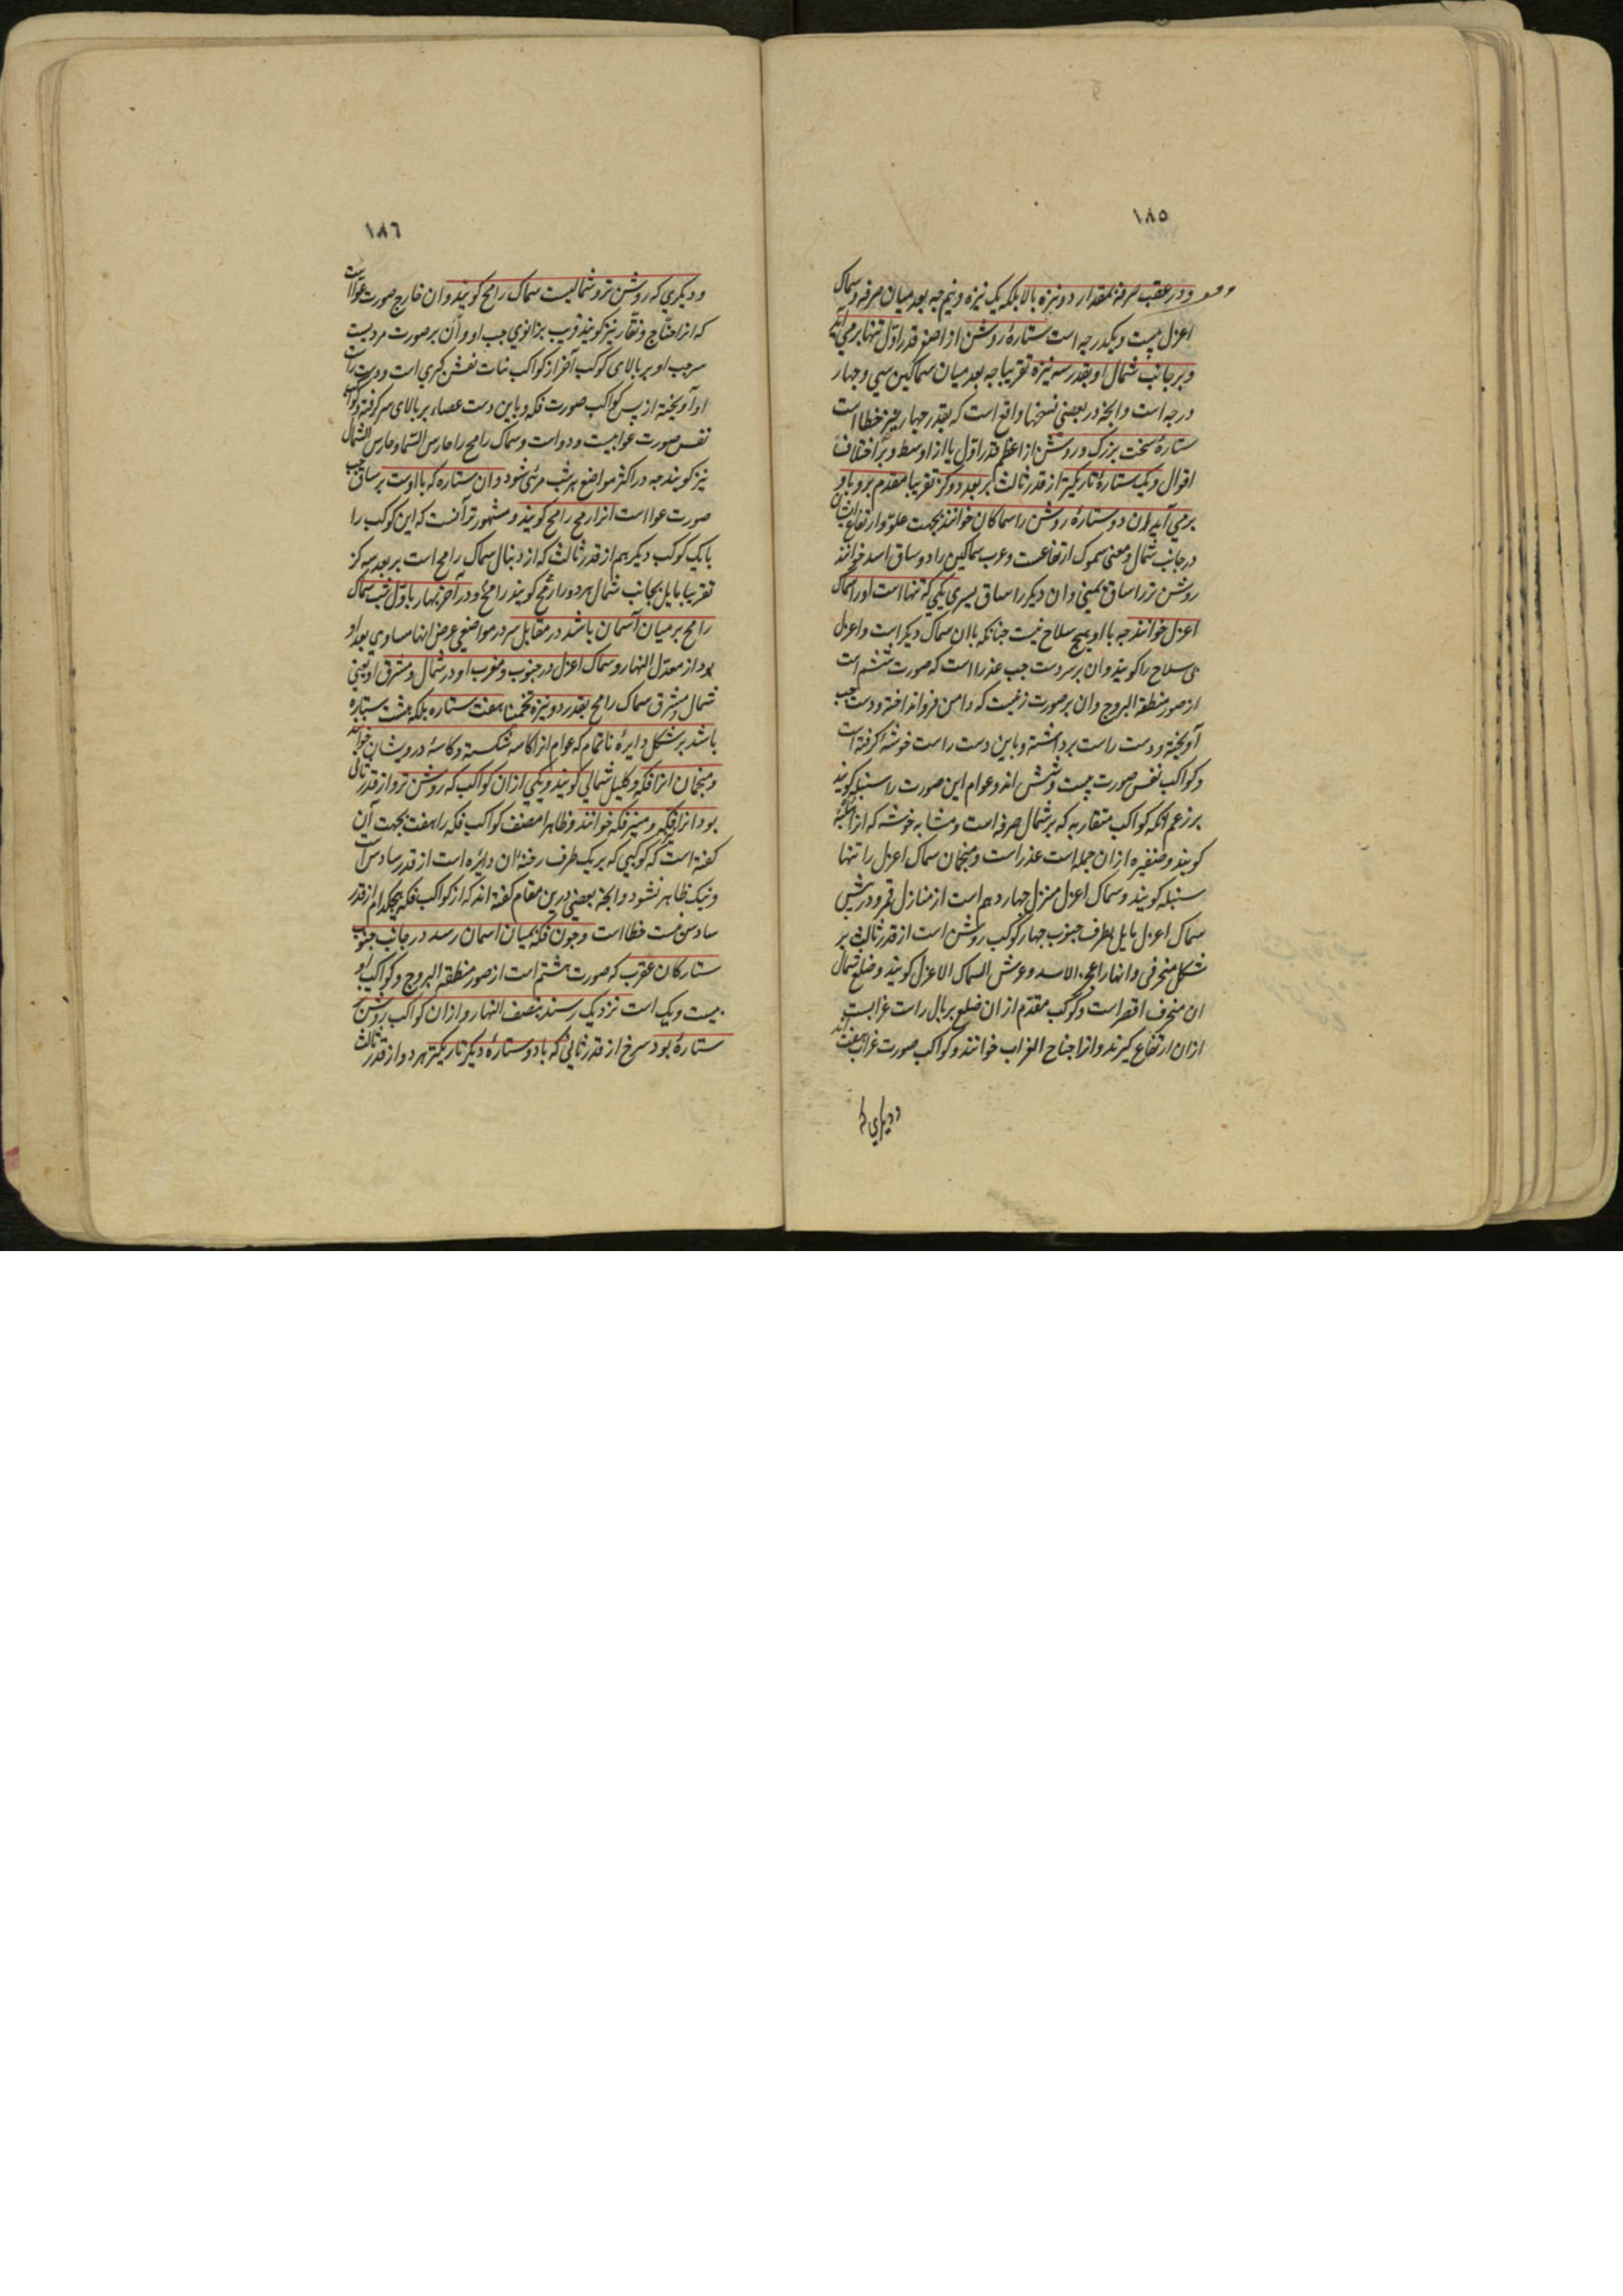 ١٨٥
ودر عقب صرفه بمقدار دو نیزه بالا بلکه یک نیزه ونیم جه بعد میان صرفه وسماک
اعزل بیست ویکدرجه است ستارهٔ روشن از اصغر قدر اوّل تنها برمی آید
وبر جانب شمال او بقدر سه نیزه تقریبا جه بعد میان سماکین سی وجهار
درجه است وانجه در بعضی نسخها واقع است که بقدر جهار نیزه خطا است
ستارهٔ سخت بزرک وروشن از اعظم قدر اول یا از اوسط وبر اختلاف
اقوال ویک ستارهٔ تاریکتر از قدر ثالث بر بعد دو کز تقریبا مقدم برو با او
برمی آید این دو ستارهٔ روشن را سماکان خوانند بجهت علوّ وارتفاع ایشان
در جانب شمال ومعنی سموک ارتفاعست وعرب سماکین را دو ساق اسد خوانند
روشن تر را ساق یمینی وان دیکر را ساق یسری یکی که تنها است اورا سماک
اعزل خوانند جه با او هیج سلاح نیست جنانکه با ان سماک دیکر است واعزل
بی سلاح را کویند وان بر سر دست جب عذرا است که صورت ششم است
از صور منطقة البروج وان بر صورت زنیست که دامن فرو انداخته ودست جب
آویخته ودست راست برداشته وباین دست راست خوشهٔ کرفته است
وکواکب نفس صورت بیست وشش اند وعوام این صورت را سنبله کویند
بر زعم آنکه کواکب متقاربه که بر شمال صرفه است ومشابه خوشه که انرا
کویند وضفیره از ان جمله است عذر است ومنجمان سماک اعزل را تنها
سنبله کویند وسماک اعزل منزل جهاردهم است از منازل قمر ودر پیش
سماک اعزل مایل بطرف جنوب جهار کوکب روشن است از قدر ثالث بر
شکل منحرفی وانها را عجز الاسد وعرش السماک الاعزل کویند وضلع شمال
ان منحرف اقصر است وکوکب مقدم از ان ضلع بر بال راست غرابست
از ان ارتفاع کیرند وانرا جناح الغراب خوانند وکواکب صورت غراب هفت اند
ودیکری که
١٨٦
ودیکری که روشن تر وشمالیست سماک رامح کویند وان خارج صورت عوّا است
که انرا صنّاج ونقّار نیز کویند قریب بزانوی جب او وآن بر صورت مردیست
سر جب او بر بالای کوکب آخر از کواکب بنات نعش کبری است ودست راست
او آویخته از پس کواکب صورت فکه وباین دست عصاء بر بالای سر کرفته وکواکب
نفس صورت عوا بیست ودو است وسماک رامح را حارس السّما وحارس الشمال
نیز کویند جه در اکثر مواضع هر شب مرئی شود وان ستاره که با اوست بر ساق جب
صورت عوا است انرا رمح رامح کویند ومشهورتر آنست که این کوکب را
با یک کوکب دیکر هم از قدر ثالث که از دنبال سماک رامح است بر بعد سه کز
تقریبا مایل بجانب شمال هر دو را رمح کویند رامح ودر آخر بهار باوّل شب سماک
رامح بر میان آسمان باشد در مقابل سر در مواضعی عرض انها مساوی بعد او
بود از معدل النهار وسماک اعزل در جنوب ومغرب او ودر شمال ومشرق او یعنی
شمال ومشرق سماک رامح بقدر دو نیزه تخمینا هفت ستاره بلکه هشت ستاره
باشد بر شکل دایرهٔ ناتمام که عوام انرا کاسه شکسته وکاسهٔ درویشان خوانند
ومنجمان انرا فکه وکلیل شمالی کویند ویکی از ان کواکب که روشن تر واز قدر ثانی
بود انرا فکه ومنیر فکه خوانند وظاهرا مصنف کواکب فکه را هفت بجهت آن
کفته است که کوکبی که بر یک طرف رخنهٔ ان دایره است از قدر سادس است
ونیک ظاهر نشود وانجه بعضی درین مقام کفته اند که از کواکب فکه هیجکدام از قدر
سادس نیست خطا است وجون فکه بمیان اسمان رسد در جانب جنوب
ستارکان عقرب که صورت هشتم است از صور منطقة البروج وکواکب او
بیست ویک است نزدیک رسند بنصف النهار واز ان کواکب روشن
ستارهٔ بود سرخ از قدر ثانی که با دو ستارهٔ دیکر تاریکتر هر دو از قدر ثالث